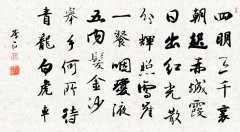 四明三千里
朝起赤城霞
日出红光散
分辉照雪崖
一餐咽琼液
五内发金沙
举手何所待
青龙白虎车
李白